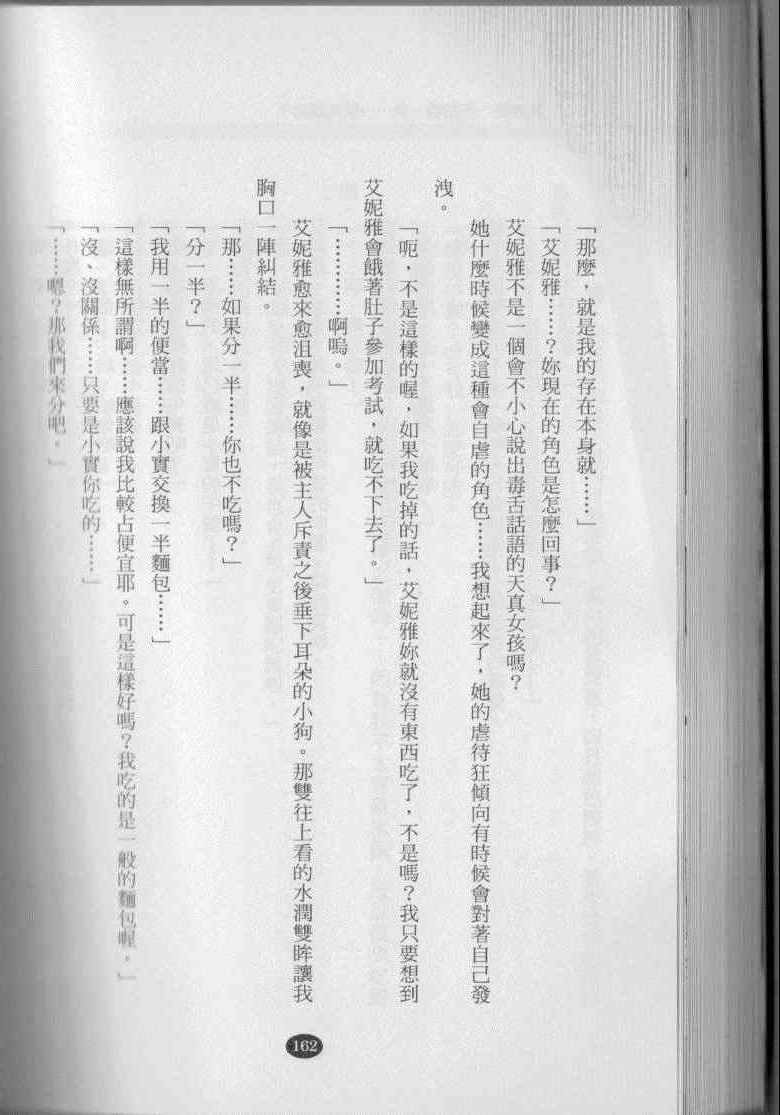 「那麼，就是我的存在本身就……」
「艾妮雅……？妳現在的角色是怎麼回事？」
艾妮雅不是一個會不小心說出毒舌話語的天真女孩嗎？
她什麼時候變成這種會自虐的角色……我想起來了，她的虐待狂傾向有時候會對著自己發
洩。
「呃，不是這樣的喔，如果我吃掉的話，艾妮雅妳就沒有東西吃了，不是嗎？我只要想到
艾妮雅會餓著肚子參加考試，就吃不下去了。」
「…………啊嗚。」
艾妮雅愈來愈沮喪，就像是被主人斥責之後垂下耳朵的小狗。那雙往上看的水潤雙眸讓我
胸口一陣糾結。
「那……如果分一半……你也不吃嗎？」
「分一半？」
「我用一半的便當……跟小實交換一半麵包……」
「這樣無所謂啊……應該說我比較占便宜耶。可是這樣好嗎？我吃的是一般的麵包喔。」
「沒、沒關係……只要是小實你吃的……」
「……嗯？那我們來分吧。」
162